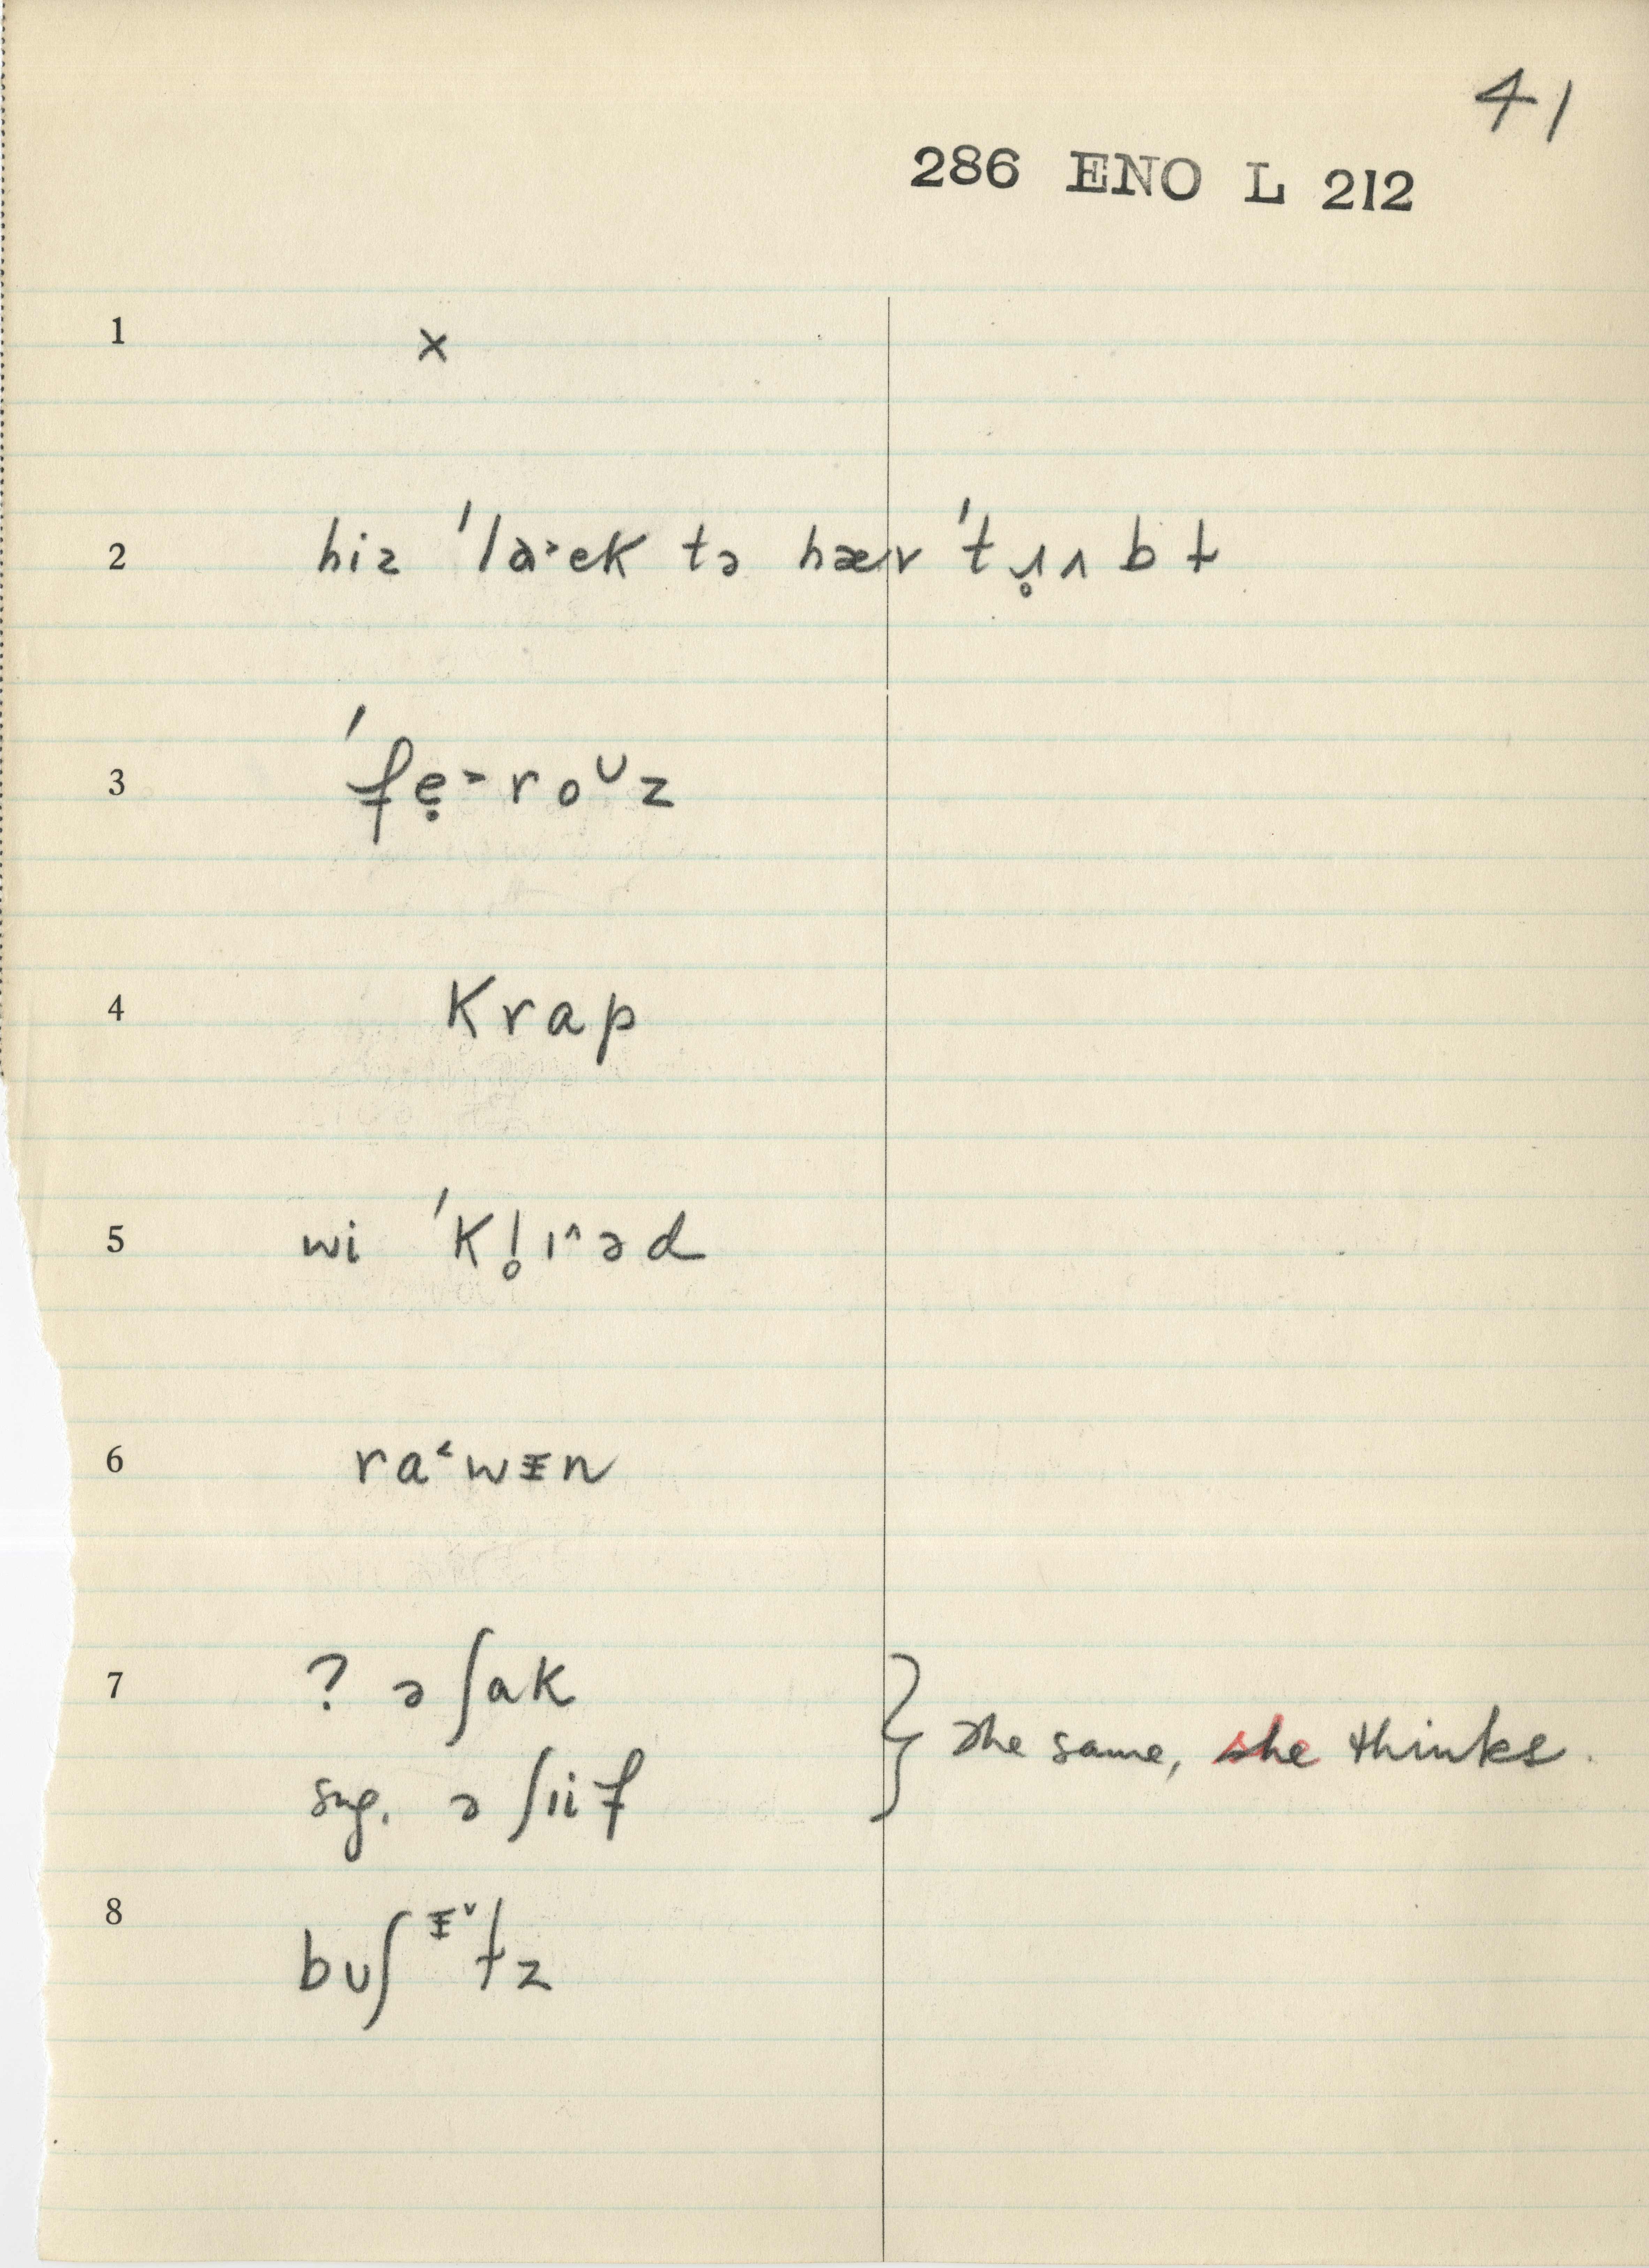 41
286 ENO L 212
1 x
2 hiz 'la˃ek tə hæv 'tɹ̥ʌbɫ
3 'fẹ˃roᶷz
4 krap
5 wi 'kl̥ɪ^əd
6 ra˂wɪ̵n
7 ? ə ʃak
sug. ə ʃiif
} The same, she thinks.
8 buʃɪ̵˅ɫz